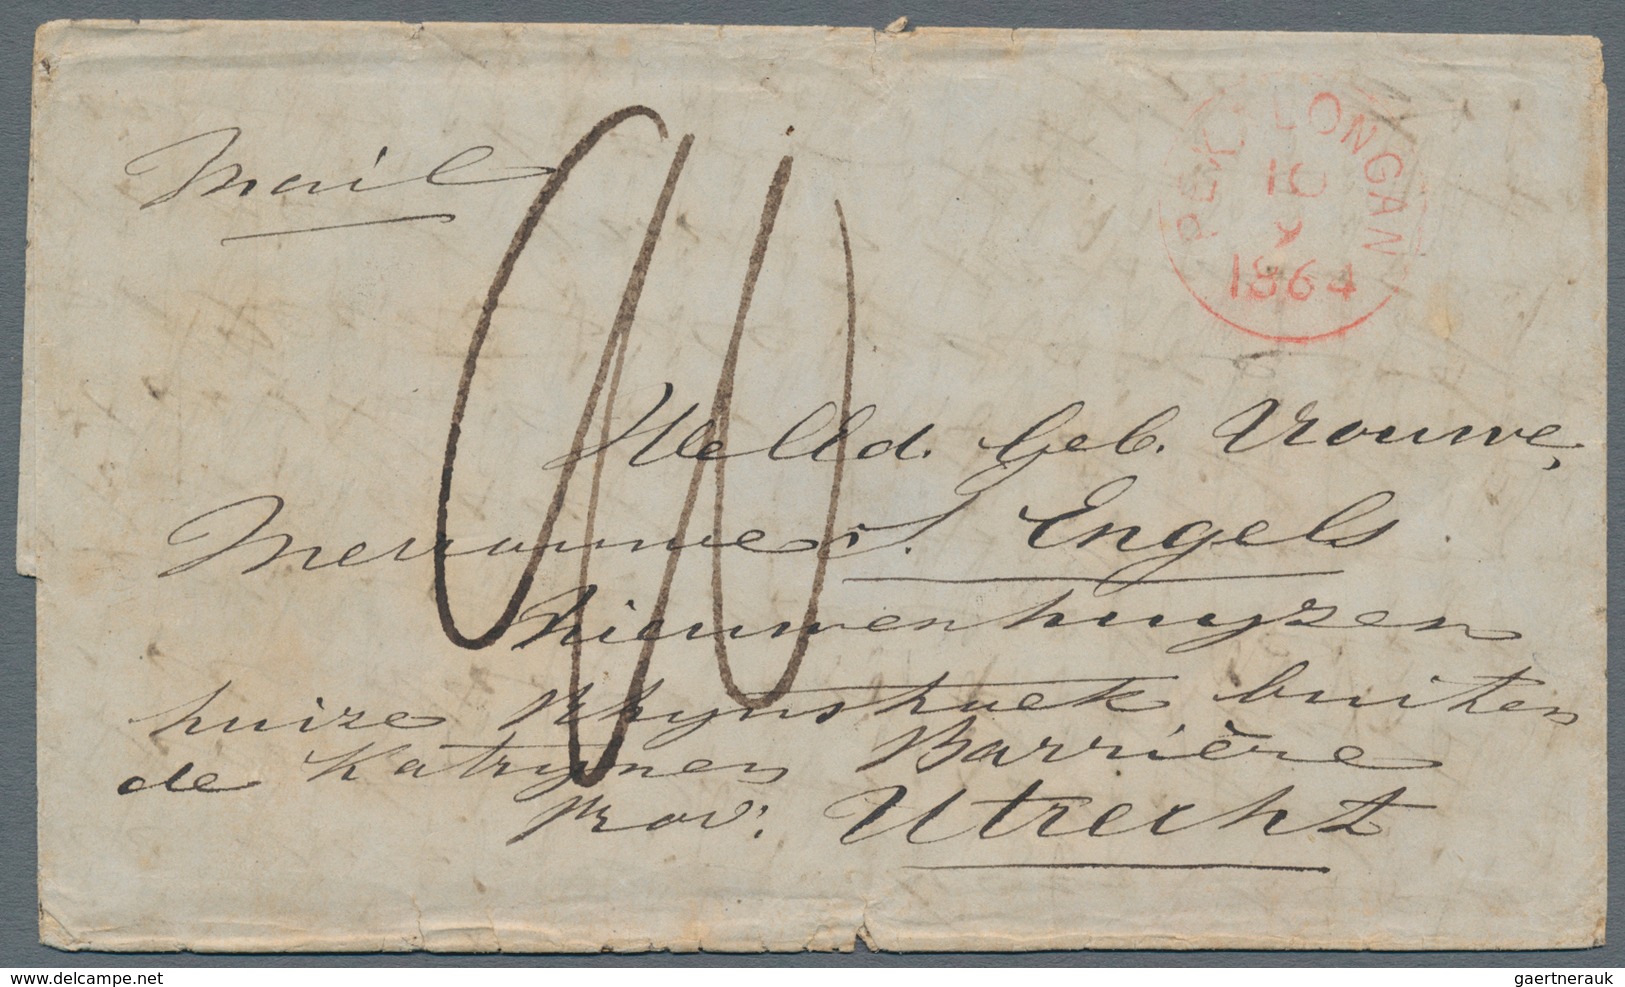 Mail
PEKALONGAN
10
1864
WelEd. Geb. Vrouwe,
Mevrouwe S. Engels
Nieuwenhuyzen
huize Rhynshoek buiten
de Katrynen Barrière
Prov: Utrecht
gaertnerauk